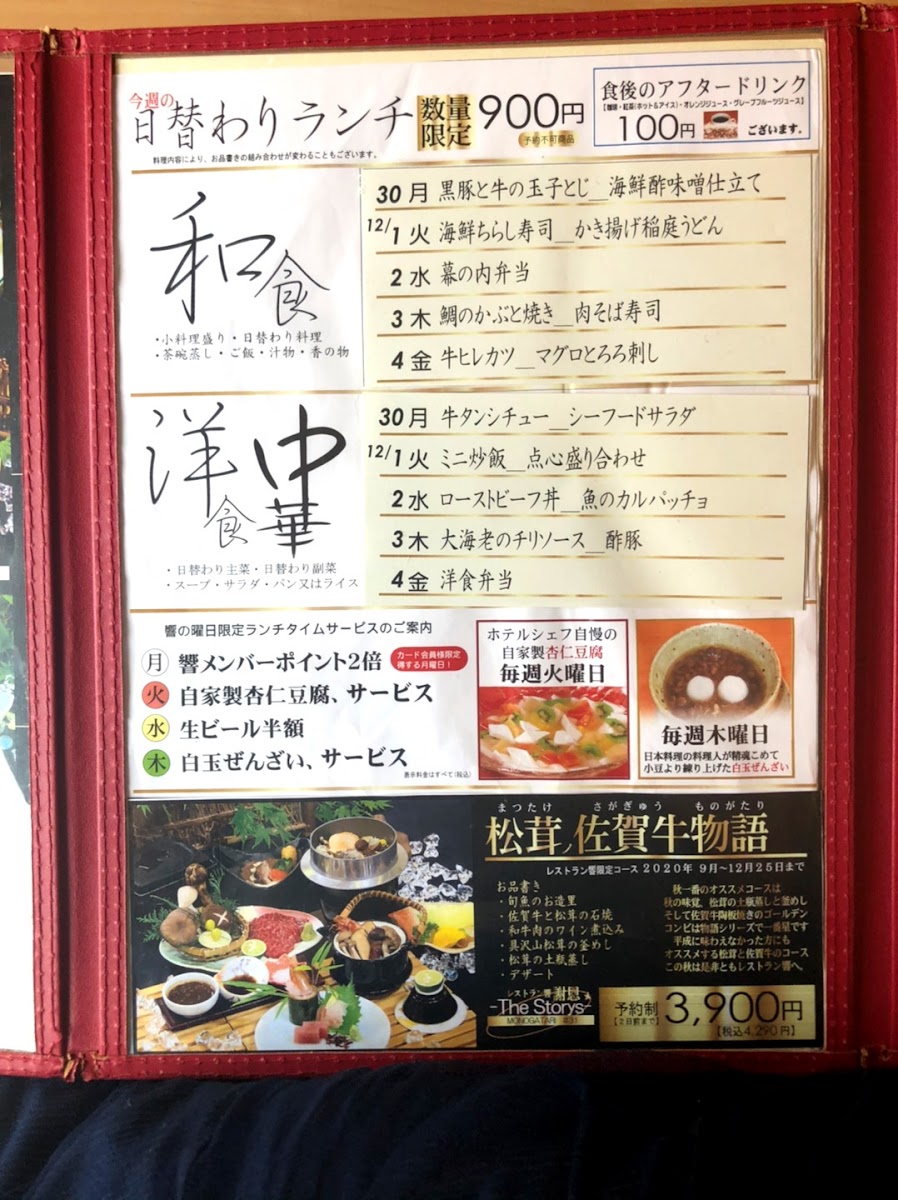 今週の
日替わりランチ 数量限定 900円
予約不可商品
料理内容により、お品書きの組み合わせが変わることもございます。
食後のアフタードリンク
【珈琲・紅茶(ホット&アイス)・オレンジジュース・グレープフルーツジュース】
100円 ございます。
和食
・小料理盛り・日替わり料理
・茶碗蒸し・ご飯・汁物・香の物
30 月 黒豚と牛の玉子とじ__海鮮酢味噌仕立て
12/1 火 海鮮ちらし寿司__かき揚げ稲庭うどん
2 水 幕の内弁当
3 木 鯛のかぶと焼き__肉そば寿司
4 金 牛ヒレカツ__マグロとろろ刺し
洋食 中華
・日替わり主菜・日替わり副菜
・スープ・サラダ・パン又はライス
30 月 牛タンシチュー__シーフードサラダ
12/1 火 ミニ炒飯__点心盛り合わせ
2 水 ローストビーフ丼__魚のカルパッチョ
3 木 大海老のチリソース__酢豚
4 金 洋食弁当
響の曜日限定ランチタイムサービスのご案内
月 響メンバーポイント2倍
カード会員様限定
得する月曜日!
火 自家製杏仁豆腐、サービス
水 生ビール半額
木 白玉ぜんざい、サービス
表示料金はすべて(税込)
ホテルシェフ自慢の
自家製杏仁豆腐
毎週火曜日
毎週木曜日
日本料理の料理人が精魂こめて
小豆より練り上げた白玉ぜんざい
まつたけ さがぎゅう ものがたり
松茸ノ佐賀牛物語
レストラン響限定コース 2020年 9月~12月25日まで
お品書き
・旬魚のお造里
・佐賀牛と松茸の石焼
・和牛肉のワイン煮込み
・具沢山松茸の釜めし
・松茸の土瓶蒸し
・デザート
秋一番のオススメコースは
秋の味覚、松茸の土瓶蒸しと釜めし
そして佐賀牛陶板焼きのゴールデン
コンビは物語シリーズで一番星です
平成に味わえなかった方にも
オススメする松茸と佐賀牛のコース
この秋は是非ともレストラン響へ。
レストラン響 謝恩
-The Storys-
MONOGATARI #31
予約制
【2日前まで】
3,900円
【税込4,290円】